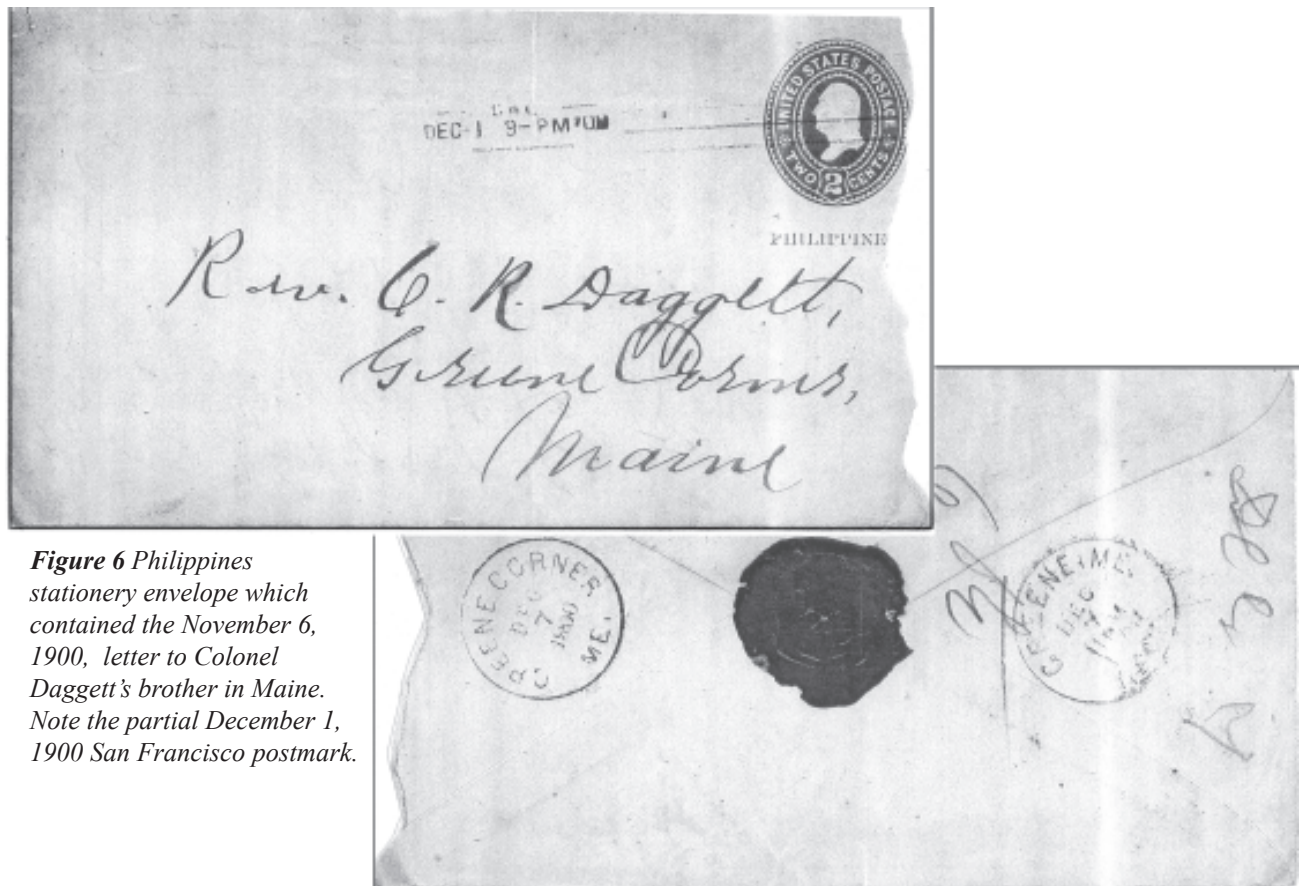 UNITED STATES POSTAGE
TWO 2 CENTS
DEC-1 9-PM
PHILIPPINE
Rev. C. R. Daggett,
Greene Corner,
Maine
Figure 6 Philippines
stationery envelope which
contained the November 6,
1900, letter to Colonel
Daggett's brother in Maine.
Note the partial December 1,
1900 San Francisco postmark.
GREENE CORNER
ME.
DEC
7
1900
GREENE, ME.
DEC
7